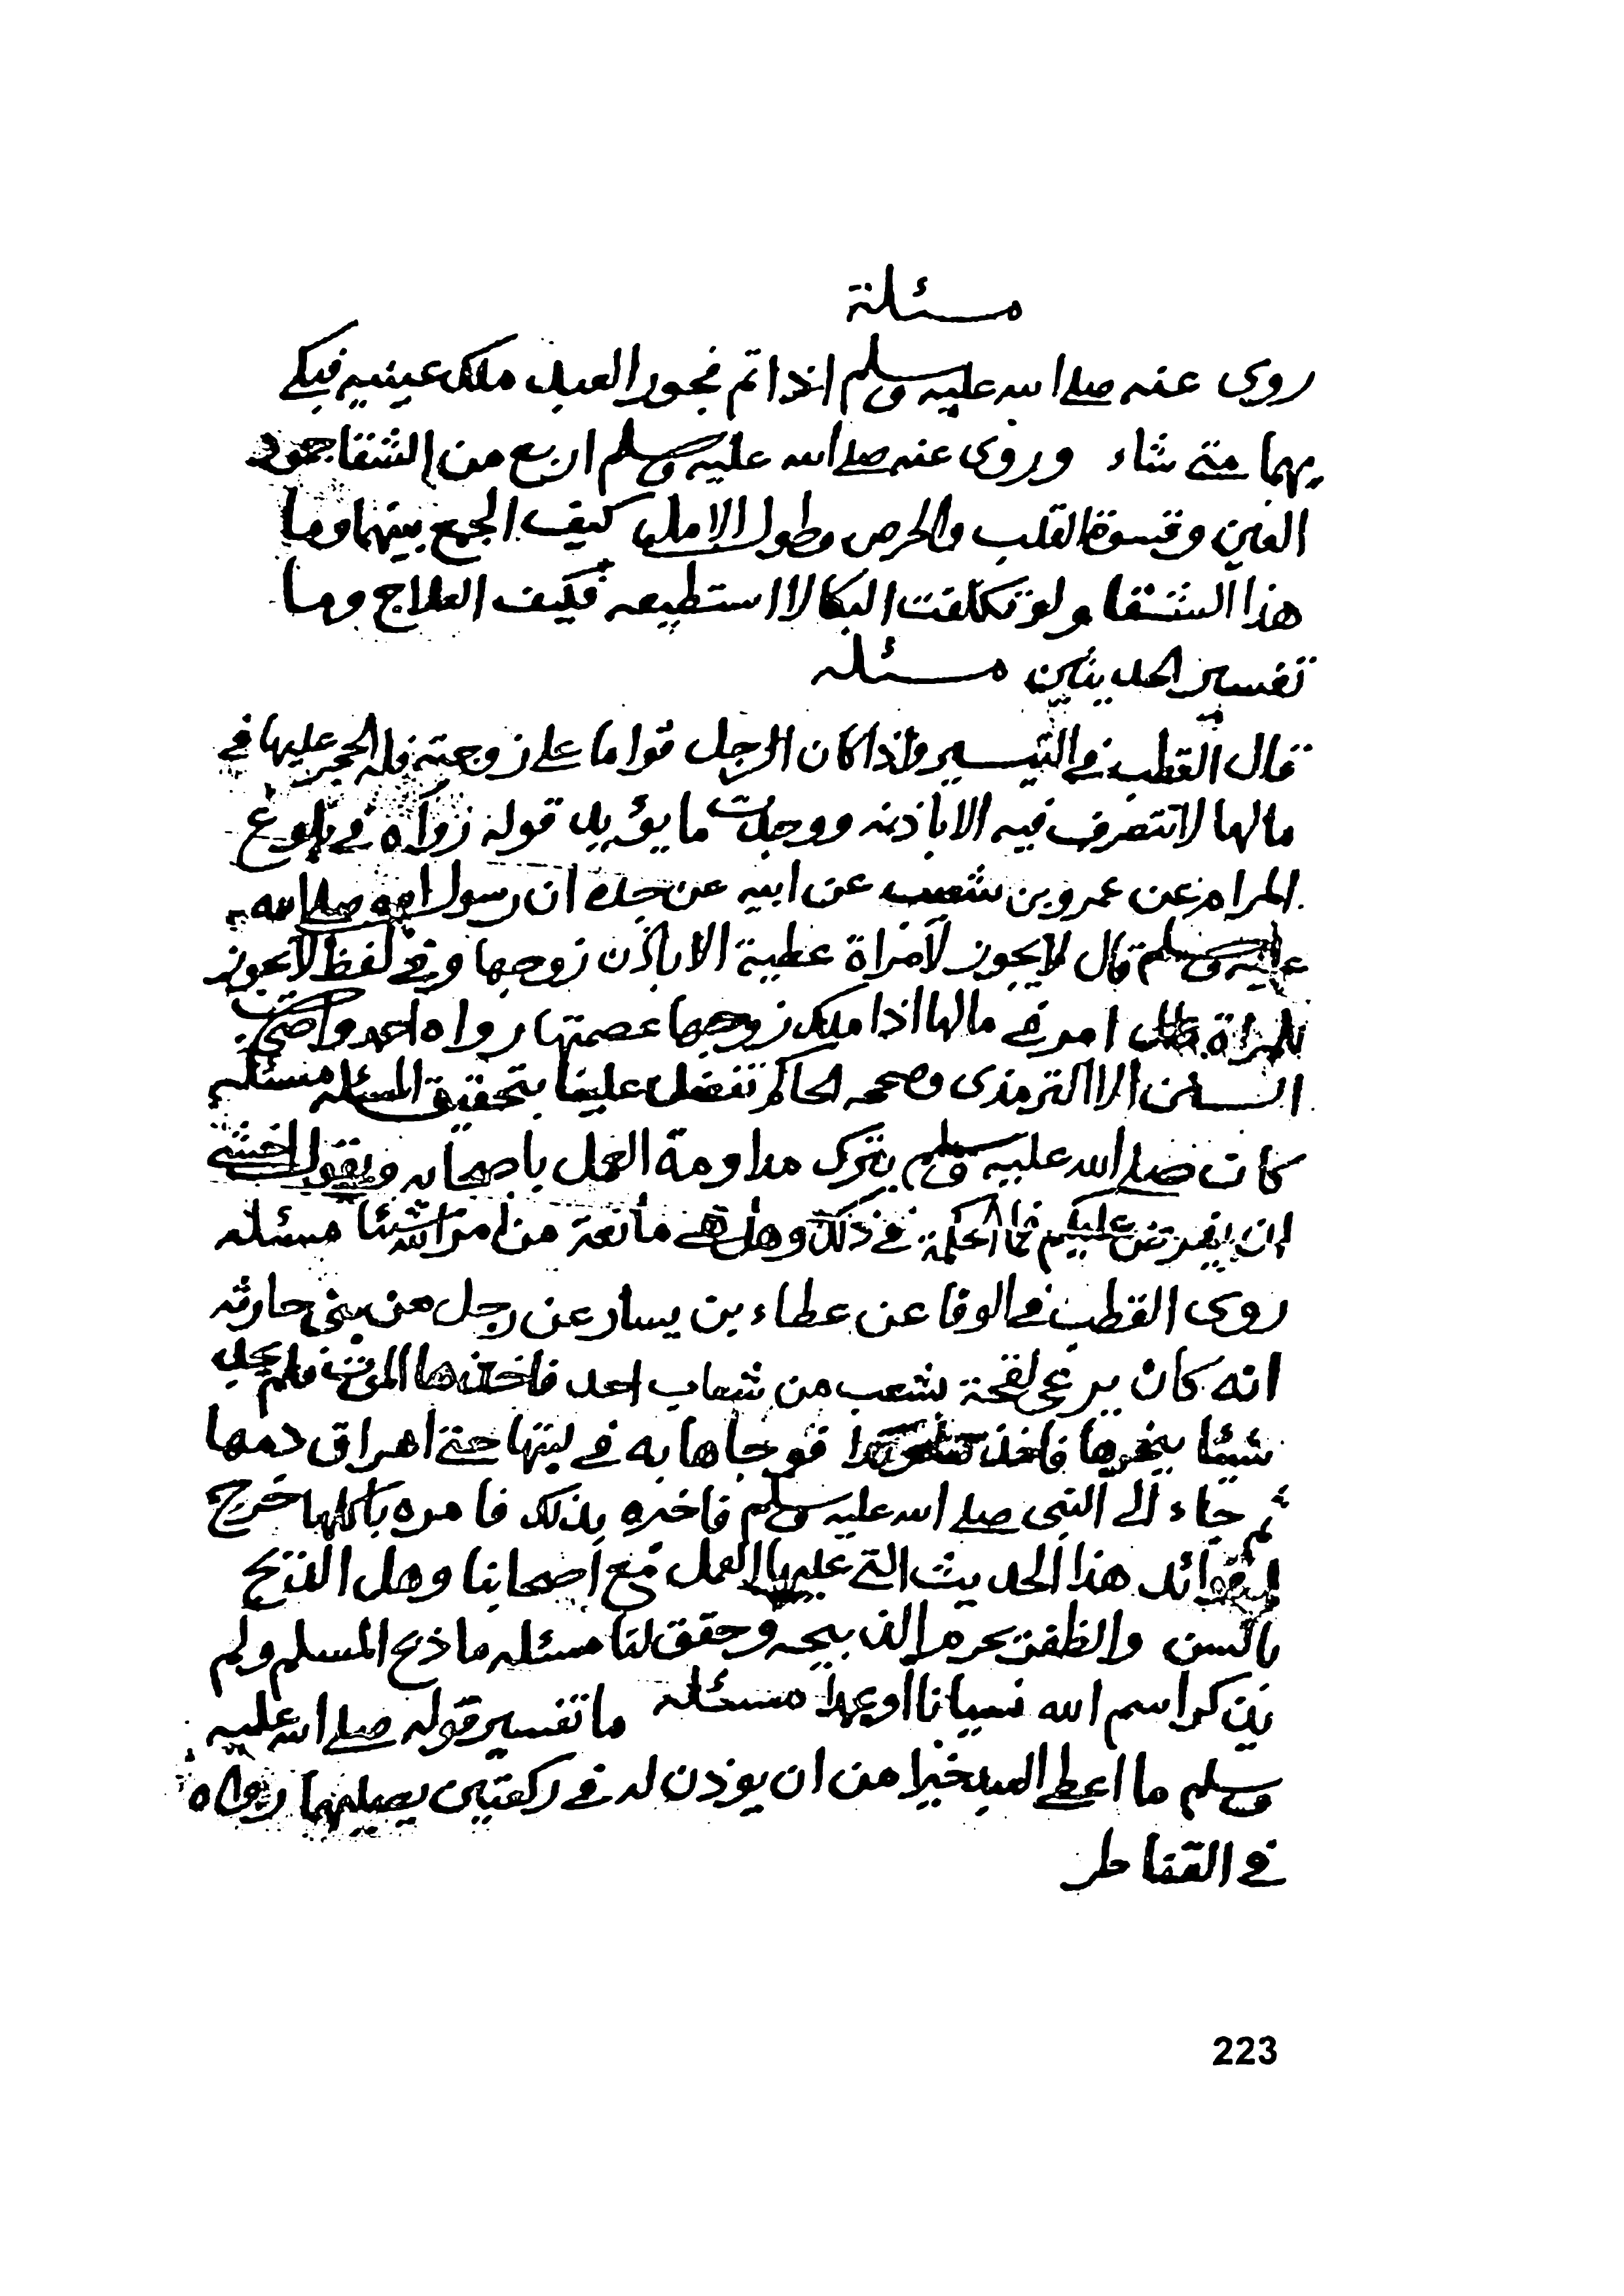 مسئلة
روى عنه صلى الله عليه وسلم اذا تم فجور العبد ملك عينيه فبكى
بهما متى شاء وروى عنه صلى الله عليه وسلم اربع من الشقا جمود
العين وقسوة القلب والحرص وطول الامل كيف الجمع بينهما وما
هذا الشقا ولو تكلفت البكا لا استطيعه فكيف العلاج وما
تفسير الحديثين مسئله
قال القطب في التيسير واذا كان الرجل قواما على زوجته فله الحجر عليها في
مالها لا تتصرف فيه الا باذنه ووجدت ما يؤيد قوله رواه في بلوغ
المرام عن عمرو بن شعيب عن ابيه عن جده ان رسول الله صلى الله
عليه وسلم قال لا يجوز لامراة عطية الا باذن زوجها وفي لفظ لا يجوز
للمراة امر في مالها اذا ملك زوجها عصمتها رواه احمد واصحاب
السنن الا الترمذى وصححه الحاكم تفضل علينا بتحقيق المسئله مسئله
كان صلى الله عليه وسلم يترك مداومة العمل باصحابه ويقول اخشى
ان يفترض عليكم فما الحكمة في ذلك وهل هي مانعة من امر الله شيئا مسئله
روى القطب في الوفا عن عطاء بن يسار عن رجل من بني حارثه
انه كان يرعى لقحة بشعب من شعاب احد فاخذها الموت فلم يجد
شيئا ينحرها فاخذ وتدا فوجاها به في لبتها حتى اهراق دمها
ثم جاء الى النبي صلى الله عليه وسلم فاخبره بذلك فامره باكلها خرج
لنا فوائد هذا الحديث التي عليها العمل مع اصحابنا وهل الذبح
بالسن والظفر يحرم الذبيحه وحقق لنا مسئله ما ذبح المسلم ولم
يذكر اسم الله نسيانا او عمدا مسئله ما تفسير قوله صلى الله عليه
وسلم ما اعطى العبد خيرا من ان يوذن له في ركعتين يصليهما رواه
في القناطر
223